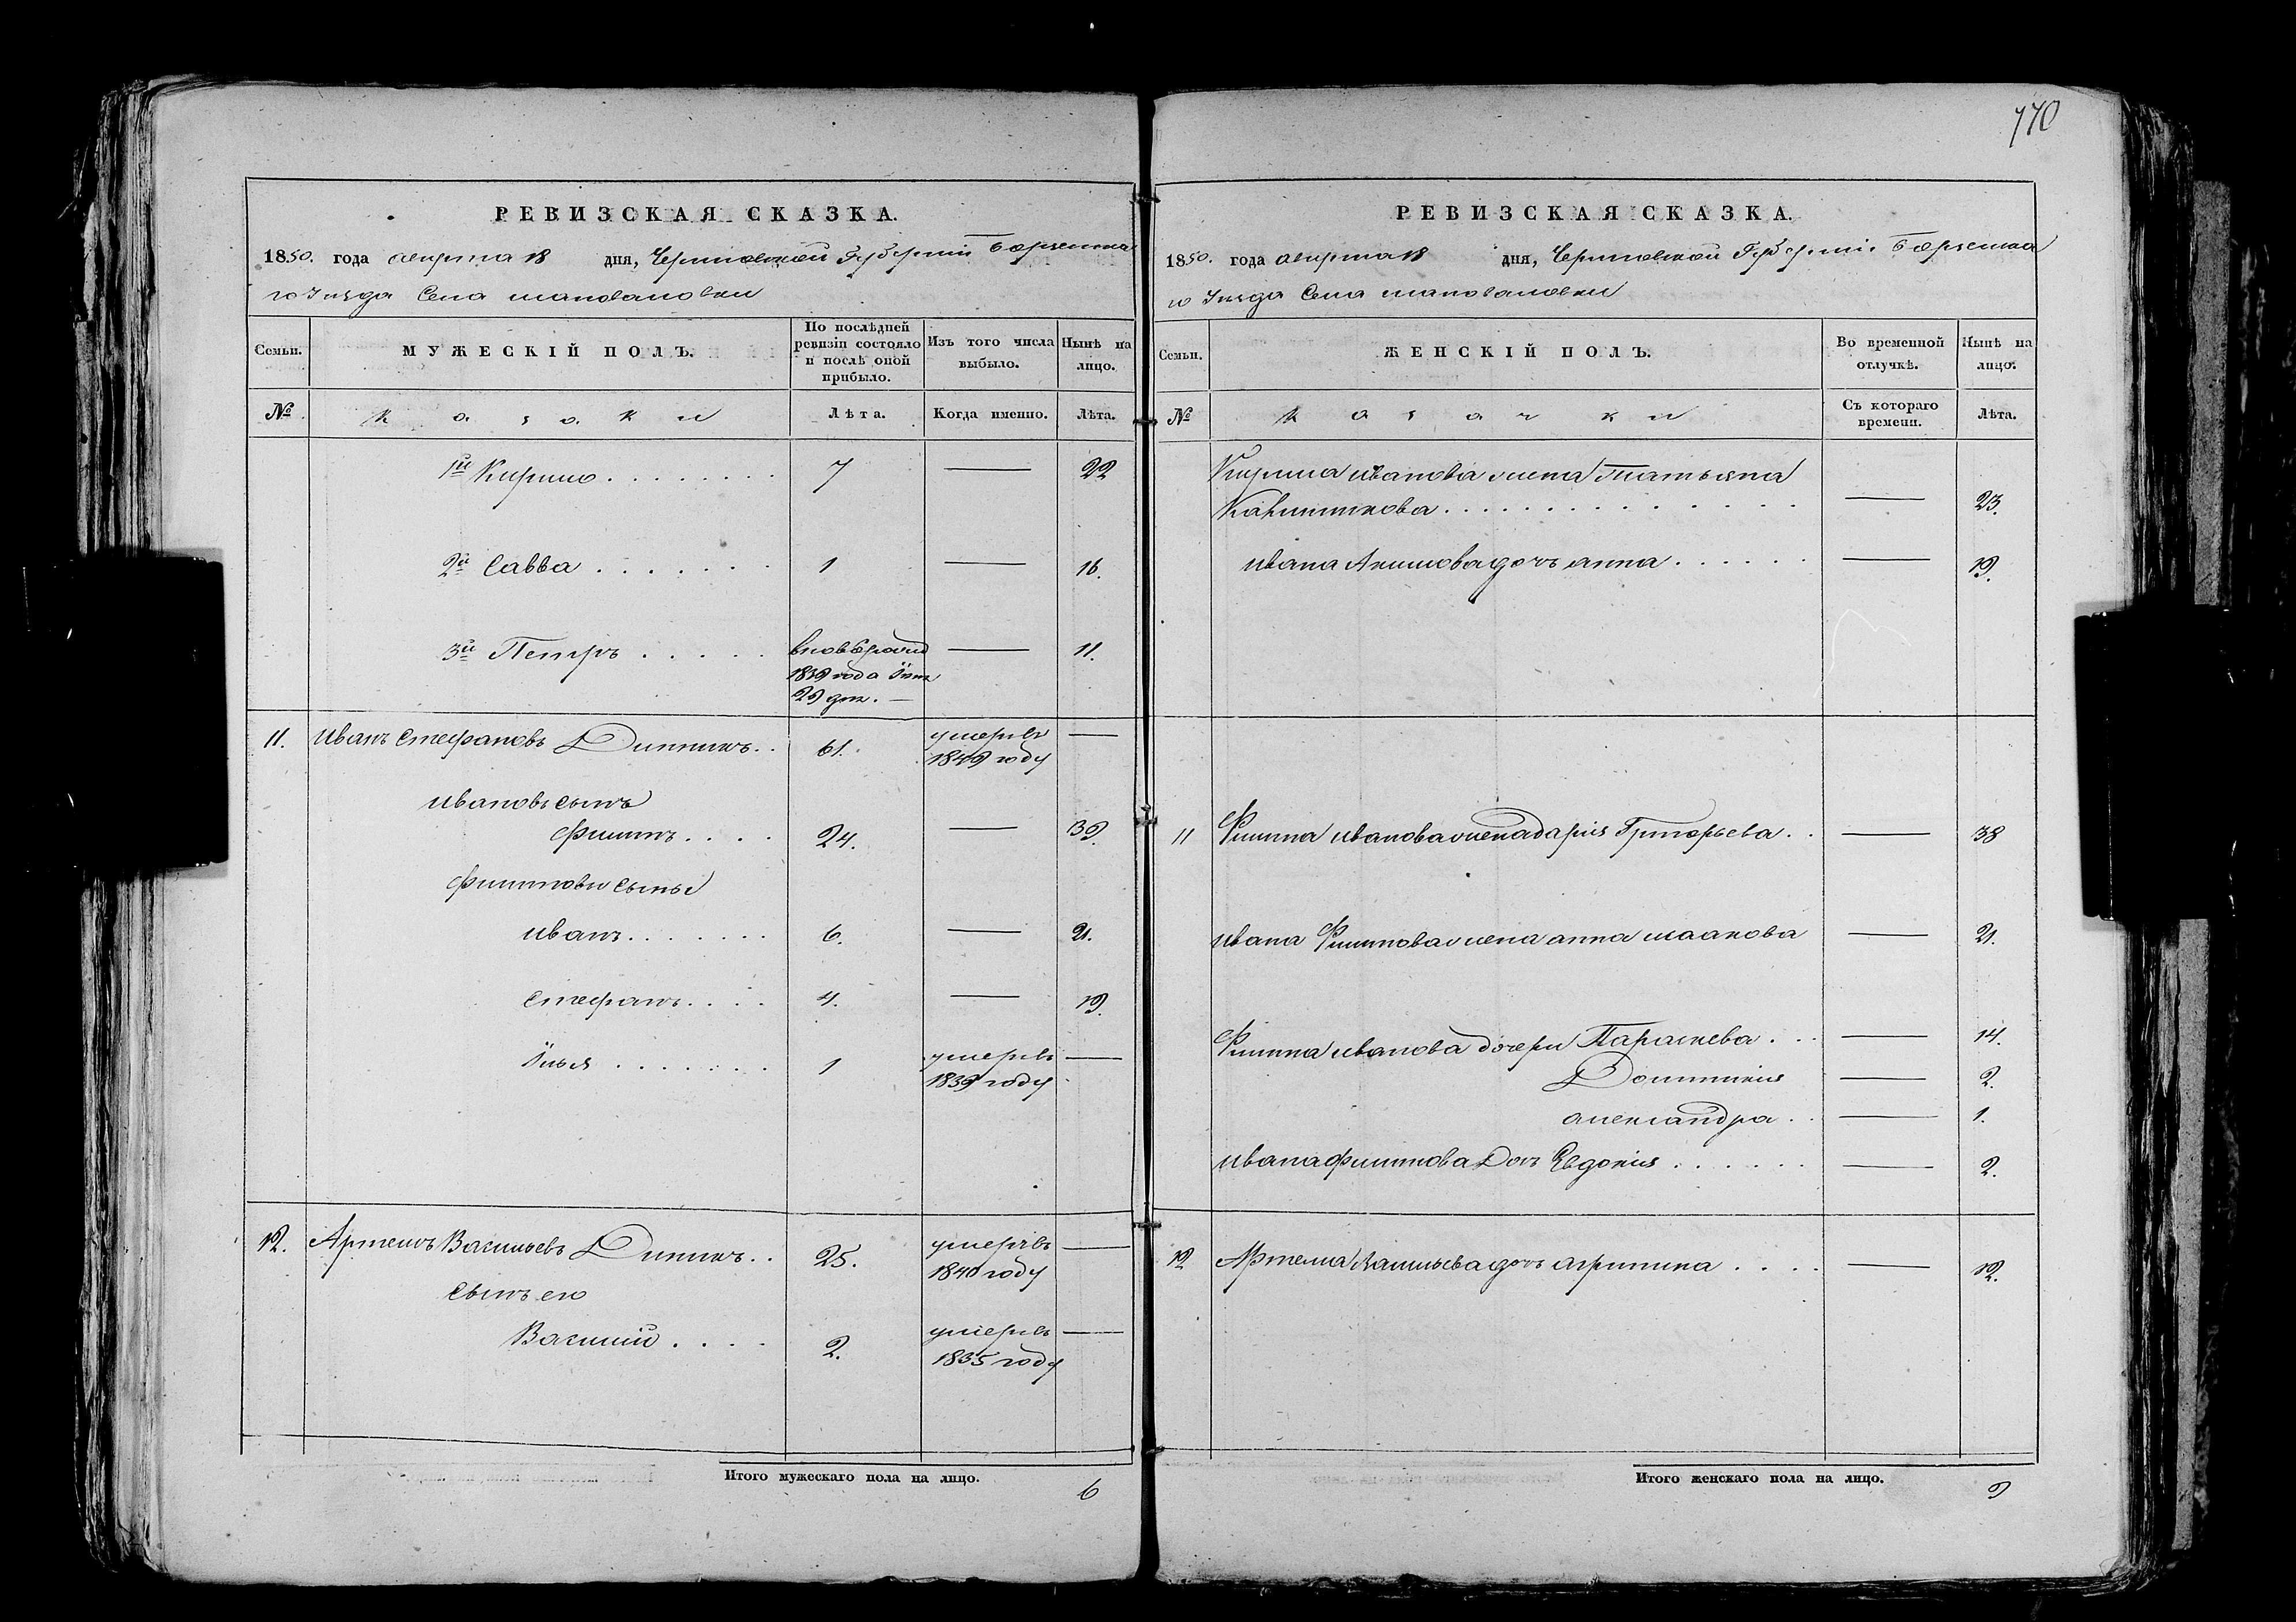 770
РЕВИЗСКАЯ СКАЗКА.
1850. года августа 18 дня, Черниговской Губерніи Борзенска
го Уѣзда Села
Семьи.
МУЖЕСКІЙ ПОЛЪ.
По послѣдней ревизіи состояло и послѣ оной прибыло.
Изъ того числа выбыло.
Нынѣ на лицо.
№
Козаки
Лѣта.
Когда именно.
Лѣта.
1й Кирило 7 — 22
2й Савва 1 — 16.
3й Петръ — 11.
1839 года
29 дня. —
11. Иванъ Стефановъ 61. умеръ въ —
1849 году
Ивановъ сынъ
Филипъ 24. — 39.
Филиповы сыны
Иванъ 6. — 21.
Стефанъ 4. — 19.
Илья 1 умеръ въ —
1839 году
12. Артемъ Васильевъ 25. умеръ въ —
1840 году
Сынъ его
Василій 2. умеръ въ —
1835 году
Итого мужескаго пола на лицо.
6
РЕВИЗСКАЯ СКАЗКА.
1850. года августа 18 дня, Черниговской Губерніи Борзенска
го Уѣзда Села
Семьи.
ЖЕНСКІЙ ПОЛЪ.
Во временной отлучкѣ.
Нынѣ на лицо.
№
Козачки
Съ котораго времени.
Лѣта.
Кирила Иванова жена Татьяна
— 23.
Ивана Акимова дочь Анна — 19.
11 Филипа Иванова жена Дарія Григорьева — 38
Ивана Филипова жена Анна Исаакова — 21.
Филипа Иванова дочери Параскева — 14.
Домникия — 2.
Александра — 1.
Ивана Филипова Дочь Евдокия — 2.
12 Артема Васильева дочь Агрипина — 12.
Итого женскаго пола на лицо.
9